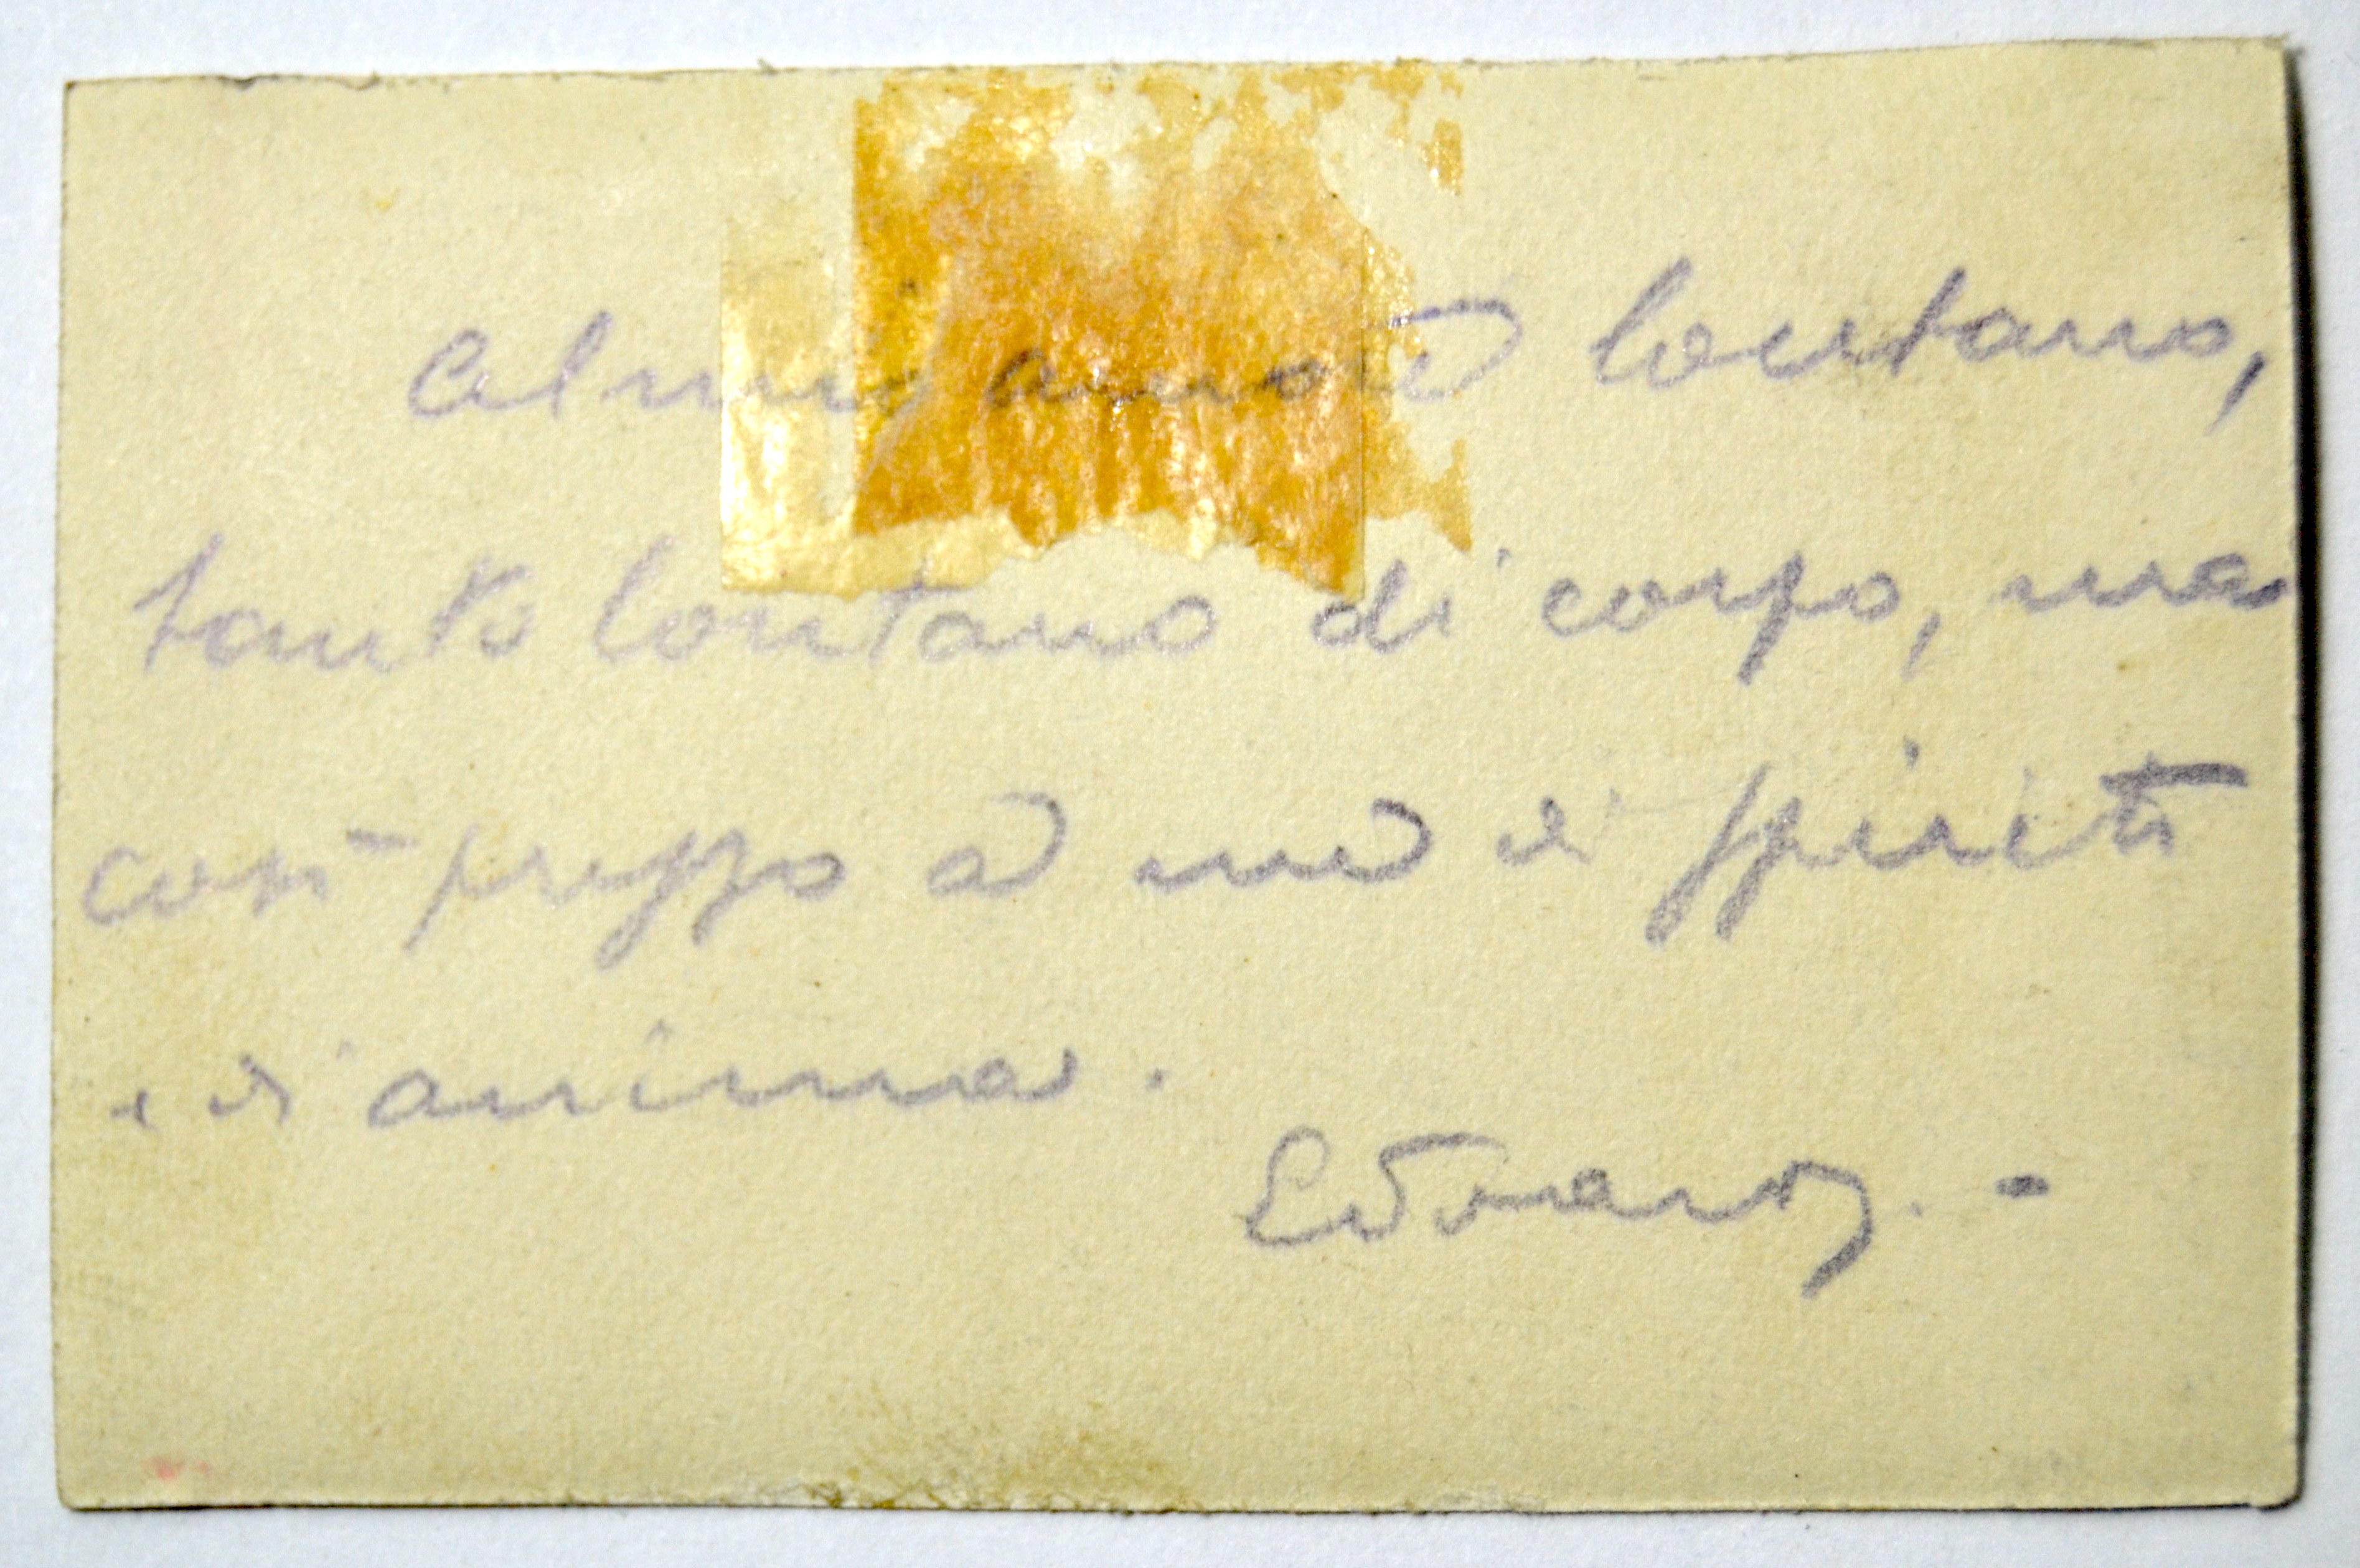 Al mio amore lontano,
tanto lontano di corpo, ma
così presso a me di spirito
e di anima.
Edoardo. -